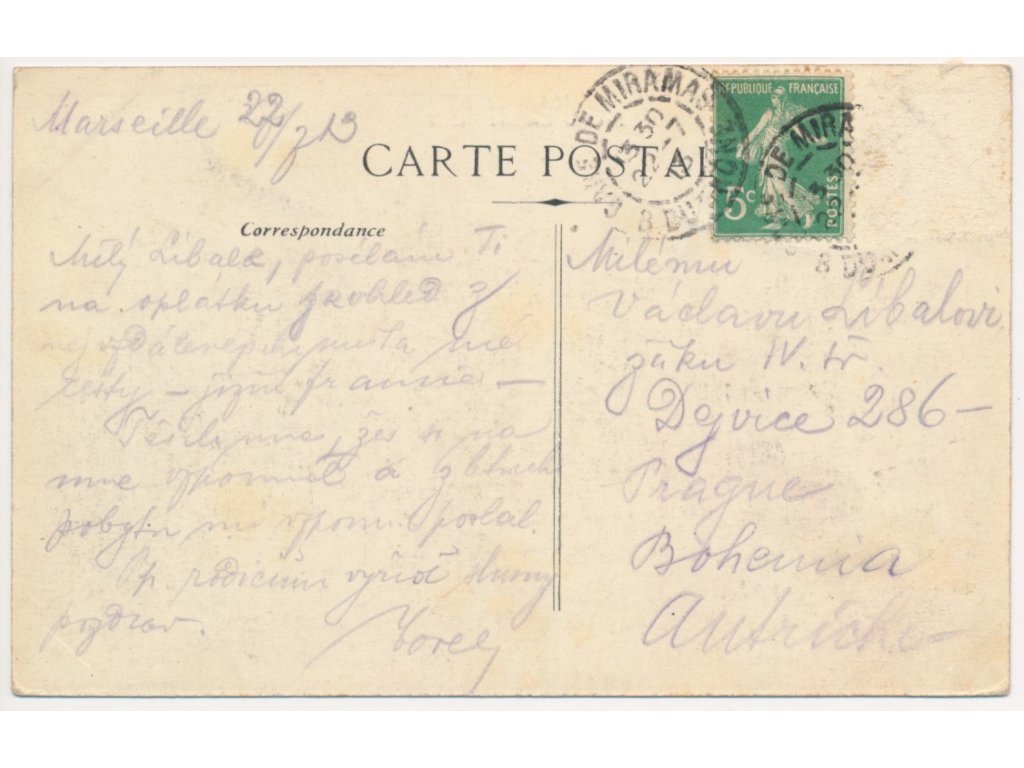 Marseille 22/7 13
CARTE POSTALE
RÉPUBLIQUE FRANÇAISE
5c
POSTES
GARE DE MIRAMAS
3 30
22
B DU RHONE
DE MIRA
3 30
B DU
Correspondance
Milý Líbale, posílám Ti
na oplátku pohled z
nejvzdálenějšího místa mé
cesty – jižní Francie –
Těšilo mne, žes si na
mne vzpomněl a z
pobytu mi poslal.
Pp. rodičům vyřiď
pozdrav.
Milému
Václavu Líbalovi
žáku IV. tř.
Dejvice 286 –
Prague
Bohemia
Autriche